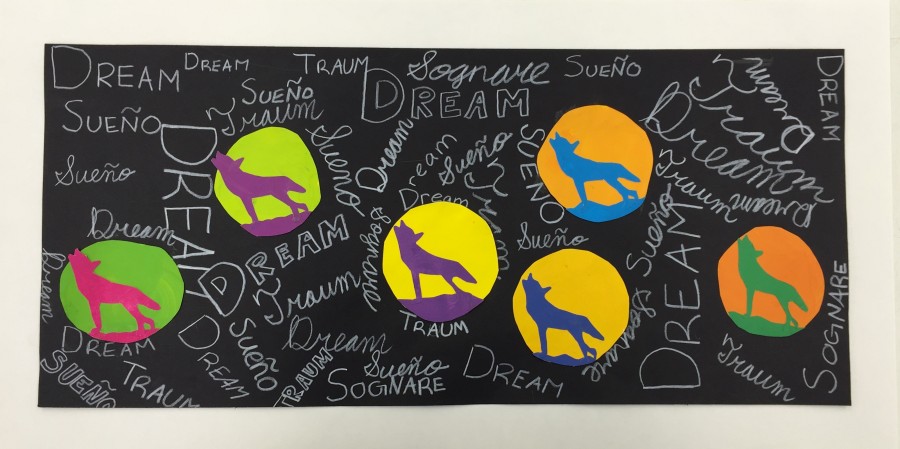 DREAM
DREAM
TRAUM
Sognare
SUEÑO
DREAM
SUEÑO
Traum
DREAM
Traum
Dream
Traum
Dream
SUEÑO
Sueño
Dream
Dream
Sueño
SUEÑO
Traum
Dream
Sueño
DREAM
Dream
Traum
Dream
Dream
DREAM
Sognare
Sueño
Sueño
DREAM
Dream
Traum
SOGINARE
TRAUM
Sognare
DREAM
DREAM
Sueño
Dream
Sueño
DREAM
Traum
SUEÑO
TRAUM
TRAUM
SOGNARE